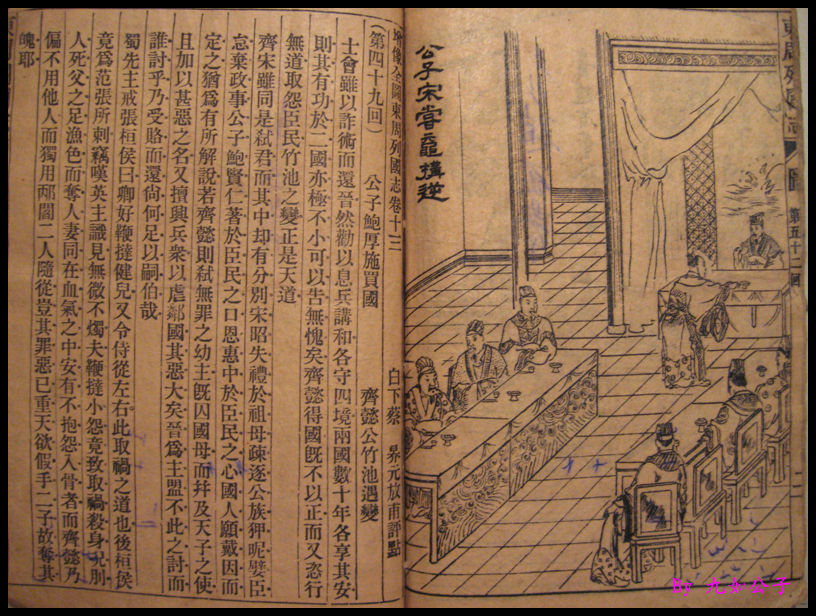 東周列國志 圖 第五十二回 二
公子宋嘗黿構逆
增像全圖東周列國志卷十三 白下蔡 昇元放甫評點
(第四十九回) 公子鮑厚施買國 齊懿公竹池遇變
士會雖以詐術而還晉然勸以息兵講和各守四境兩國數十年各享其安
則其有功於二國亦極不小可以告無愧矣齊懿得國既不以正而又恣行
無道取怨臣民竹池之變正是天道
齊宋雖同是弒君而其中却有分別宋昭失禮於祖母疎逐公族狎昵嬖臣
怠棄政事公子鮑賢仁著於臣民之口恩惠中於臣民之心國人願戴因而
定之猶爲有所解說若齊懿則弒無罪之幼主既囚國母而幷及天子之使
且加以甚惡之名又擅興兵衆以虐鄰國其惡大矣晉爲主盟不此之討而
誰討乎乃受賂而還尙何足以嗣伯哉
蜀先主戒張桓侯曰卿好鞭撻健兒又令侍從左右此取禍之道也後桓侯
竟爲范張所刺竊嘆英主識見無微不燭夫鞭撻小怨竟致取禍殺身况刖
人死父之足漁色而奪人妻同在血氣之中安有不抱怨入骨者而齊懿乃
偏不用他人而獨用邴閻二人隨從豈其罪惡已重天欲假手二子故奪其
魄耶
By 九如公子